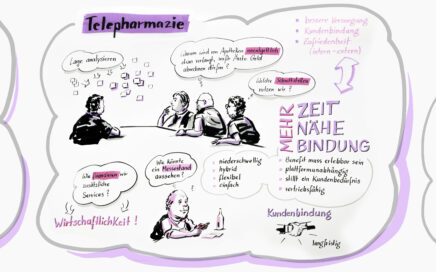 Telepharmazie
• bessere Versorgung
• Kundenbindung
• Zufriedenheit
(intern + extern)
Lage analysieren
Warum wird von Apotheken
verlangt, wofür Ärzte Geld
abrechnen dürfen?
Welche Schnittstellen
nutzen wir?
MEHR
ZEIT
NÄHE
BINDUNG
Wie finanzieren wir
zusätzliche
Services?
Wie könnte
ein Messestand
aussehen?
• niederschwellig
• hybrid
• flexibel
• einfach
• Benefit muss erlebbar sein
• plattformunabhängig
• stillt ein Kundenbedürfnis
• vertriebsfähig
Wirtschaftlichkeit!
Kundenbindung
langfristig